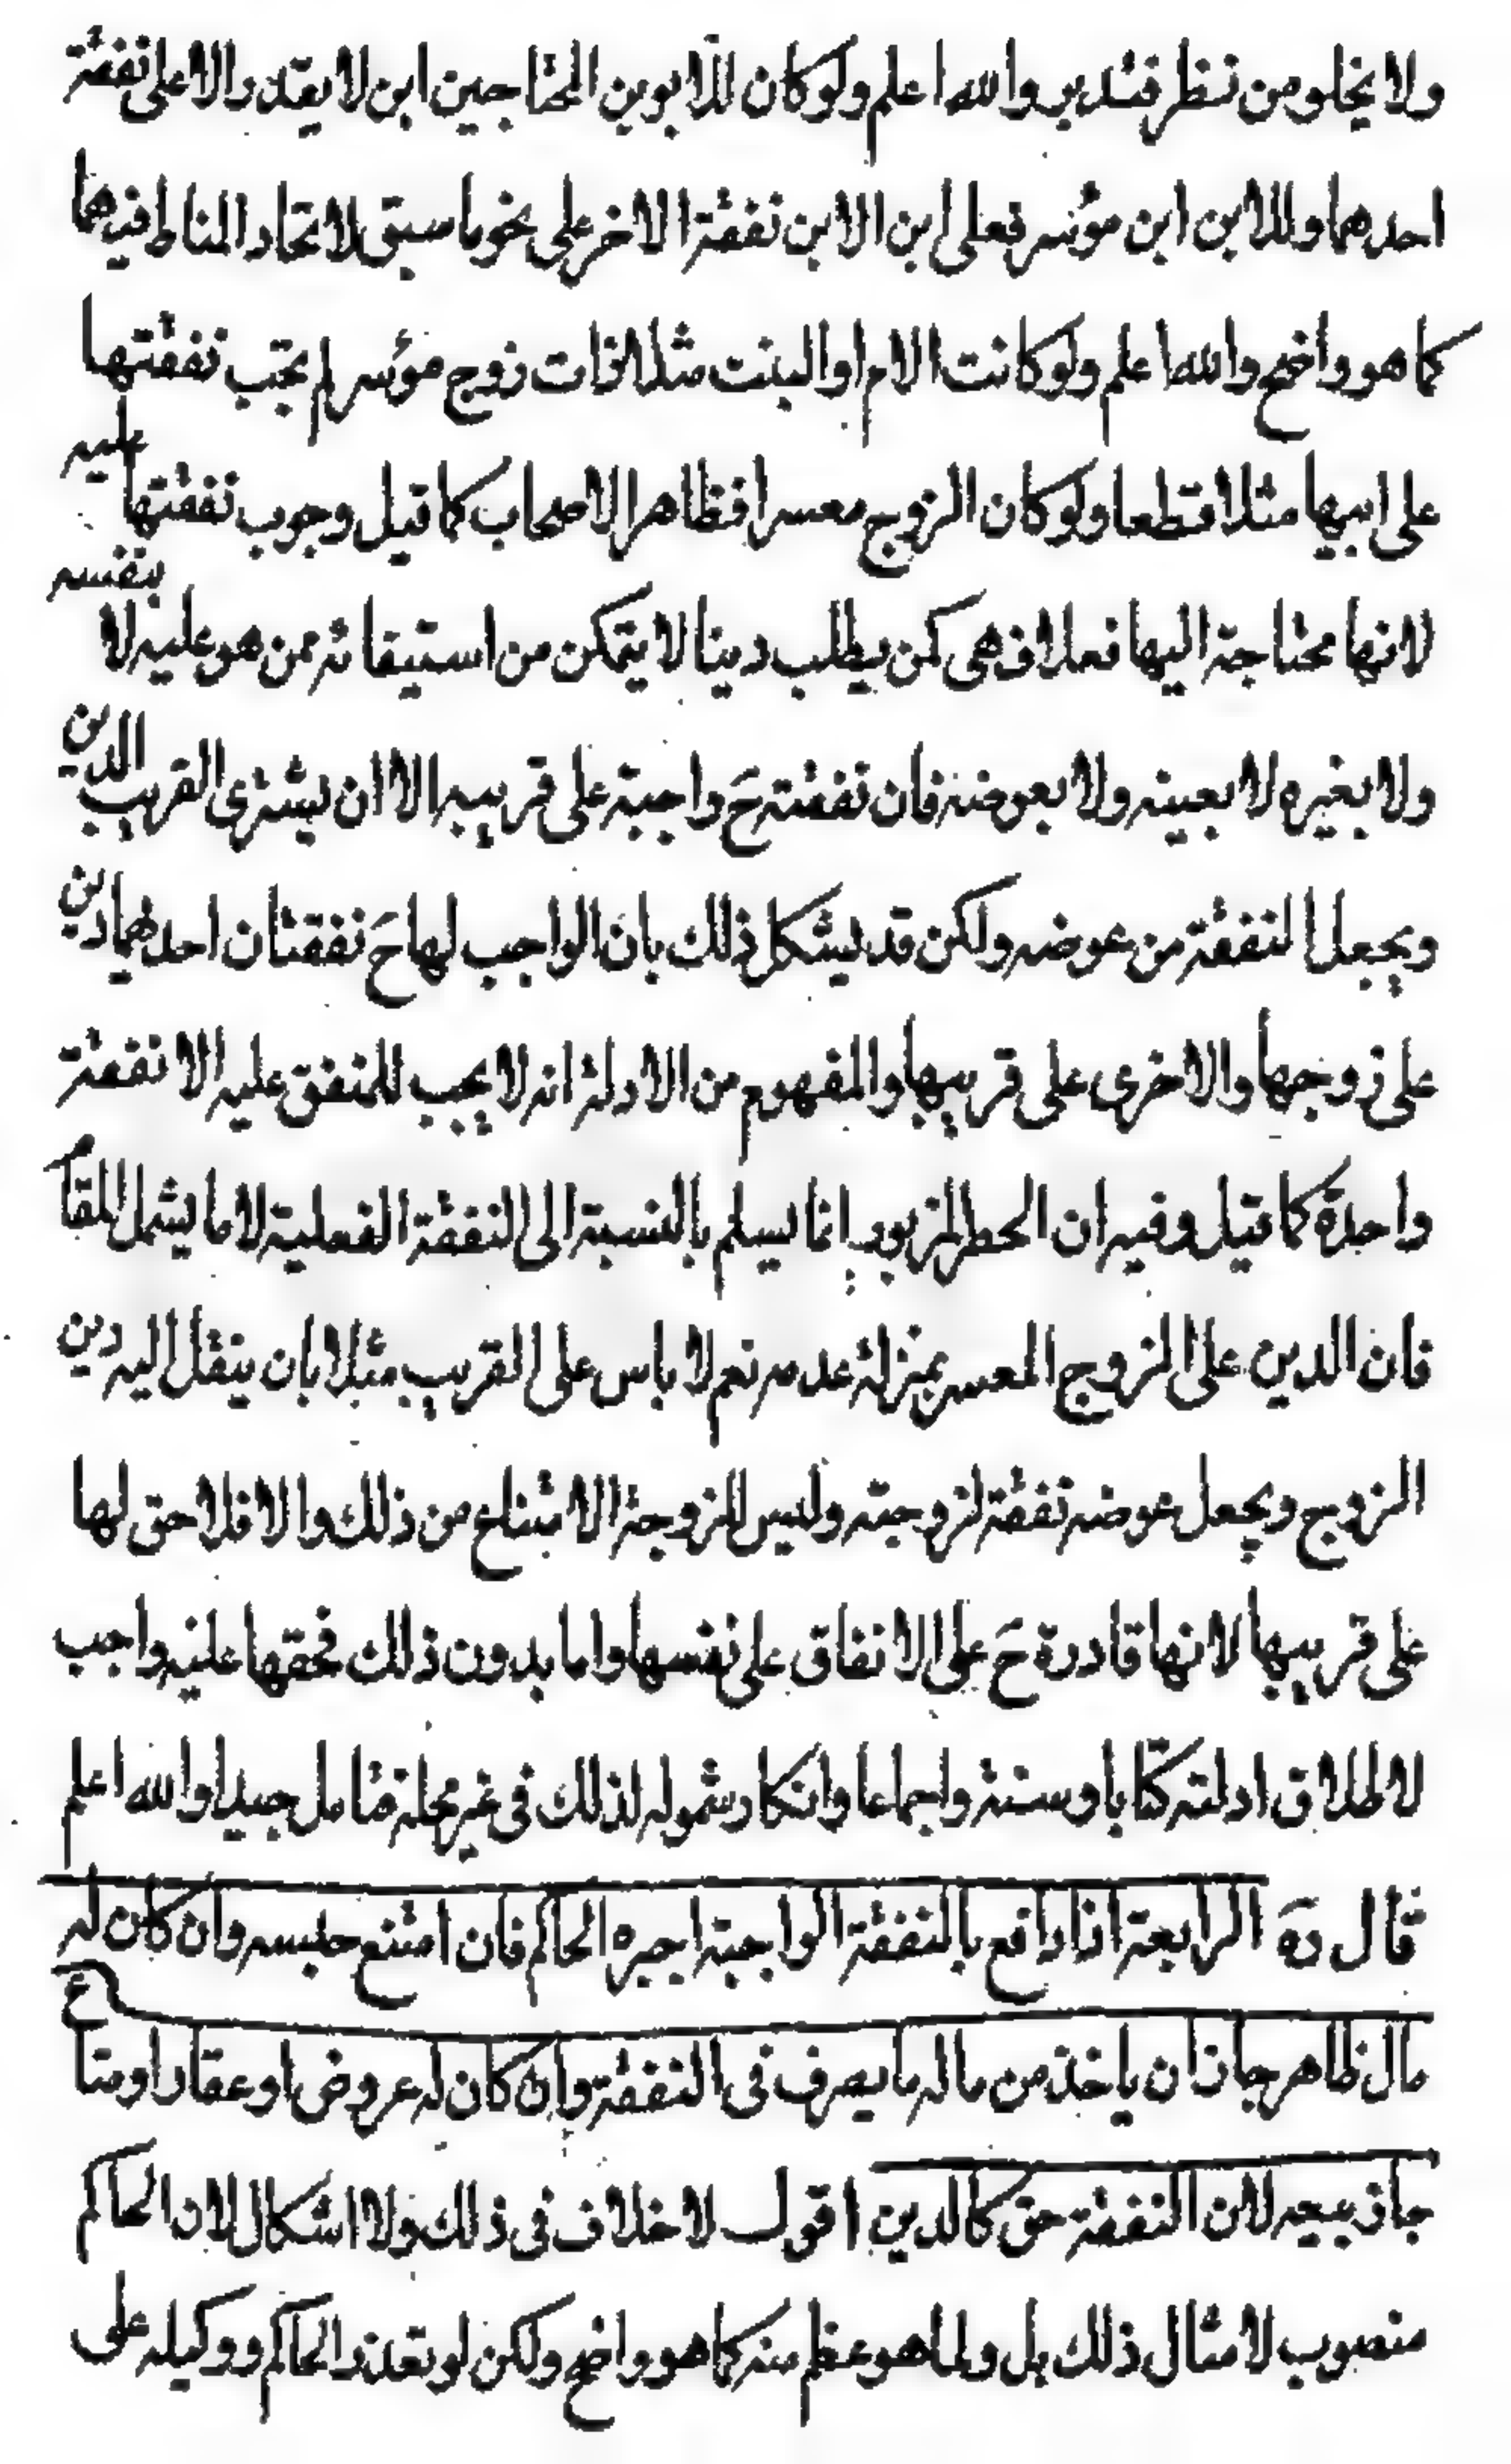 ولا يخلو من نظر فتدبر والله اعلم ولو كان للابوين المحتاجين ابن لا يقدر الا على نفقة
احدهما وللابن ابن موسر فعلى ابن الابن نفقة الاخر على نحو ما سبق لاتحاد المناط فيهما
كما هو واضح والله اعلم ولو كانت الام او البنت مثلا ذات زوج موسر لم تجب نفقتها
على ابيها مثلا قطعا ولو كان الزوج معسرا فظاهر الاصحاب كما قيل وجوب نفقتها عليه
لانها محتاجة اليها فعلا فهي كمن يطلب دينا لا يتمكن من استيفائه ممن هو عليه لا بنفسه
ولا بغيره لا بعينه ولا بعوضه فان نفقته ح واجبة على قريبه الا ان يشترى القريب الدين
ويجعل النفقة من عوضه ولكن قد يشكل ذلك بان الواجب لها ح نفقتان احدهما دين
على زوجها والاخرى على قريبها والمفهوم من الادلة انه لا يجب للمنفق عليه الا نفقة
واحدة كما قيل وفيه ان الحصر المزبور انما يسلم بالنسبة الى النفقة الفعلية لا ما يشمل المقام
فان الدين على الزوج المعسر بمنزلة عدمه نعم لا باس على القريب مثلا بان ينقل اليه دين
الزوج ويجعل عوضه نفقة لزوجته وليس للزوجة الامتناع من ذلك والا فلا حق لها
على قريبها لانها قادرة ح على الانفاق على نفسها واما بدون ذلك فحقها عليه واجب
لاطلاق ادلته كتابا وسنة واجماعا وانكار شموله لذلك في غير محله فتامل جيدا والله اعلم
قال ره الرابعة اذا دافع بالنفقة الواجبة اجبره الحاكم فان امتنع حبسه وان كان له
مال ظاهر جاز ان ياخذ من ماله ما يصرف في النفقة وان كان له عروض او عقار او متاع
جاز بيعه لان النفقة حق كالدين اقول لا خلاف في ذلك ولا اشكال لان الحاكم
منصوب لامثال ذلك بل ولما هو عظم منه كما هو واضح ولكن لو تعذر الحاكم ووكيله على